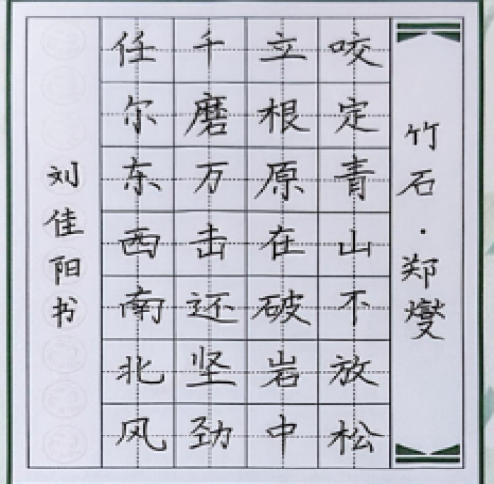 竹石·郑燮
咬定青山不放松
立根原在破岩中
千磨万击还坚劲
任尔东西南北风
刘佳阳书